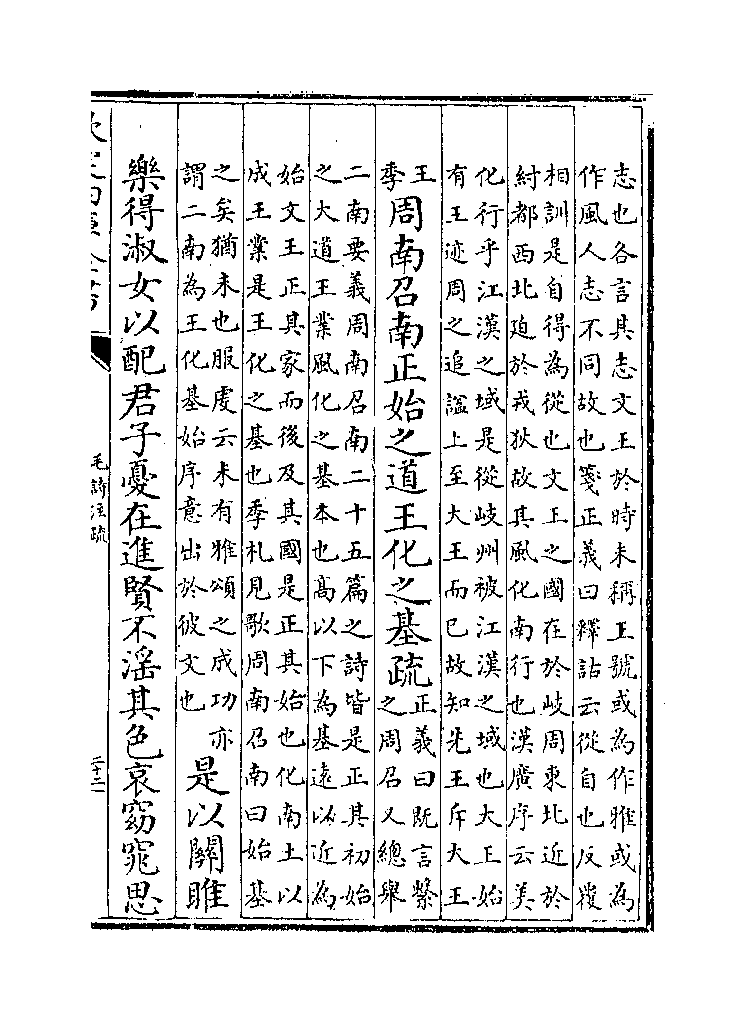 志也各言其志文王於時未稱王號或為作雅或為
作風人志不同故也箋正義曰釋詁云從自也反覆
相訓是自得為從也文王之國在於岐周東北近於
紂都西北迫於戎狄故其風化南行也漢廣序云美
化行乎江漢之域是從岐州被江漢之域也大王始
有王迹周之追謚上至大王而已故知先王斥大王
王
季
周南召南正始之道王化之基疏
正義曰既言繫
之周召又總舉
二南要義周南召南二十五篇之詩皆是正其初始
之大道王業風化之基本也髙以下為基逺以近為
始文王正其家而後及其國是正其始也化南土以
成王業是王化之基也季札見歌周南召南曰始基
之矣猶未也服虔云未有雅頌之成功亦
謂二南為王化基始序意出於彼文也
是以關雎
樂得淑女以配君子憂在進賢不淫其色哀窈窕思
毛詩注疏